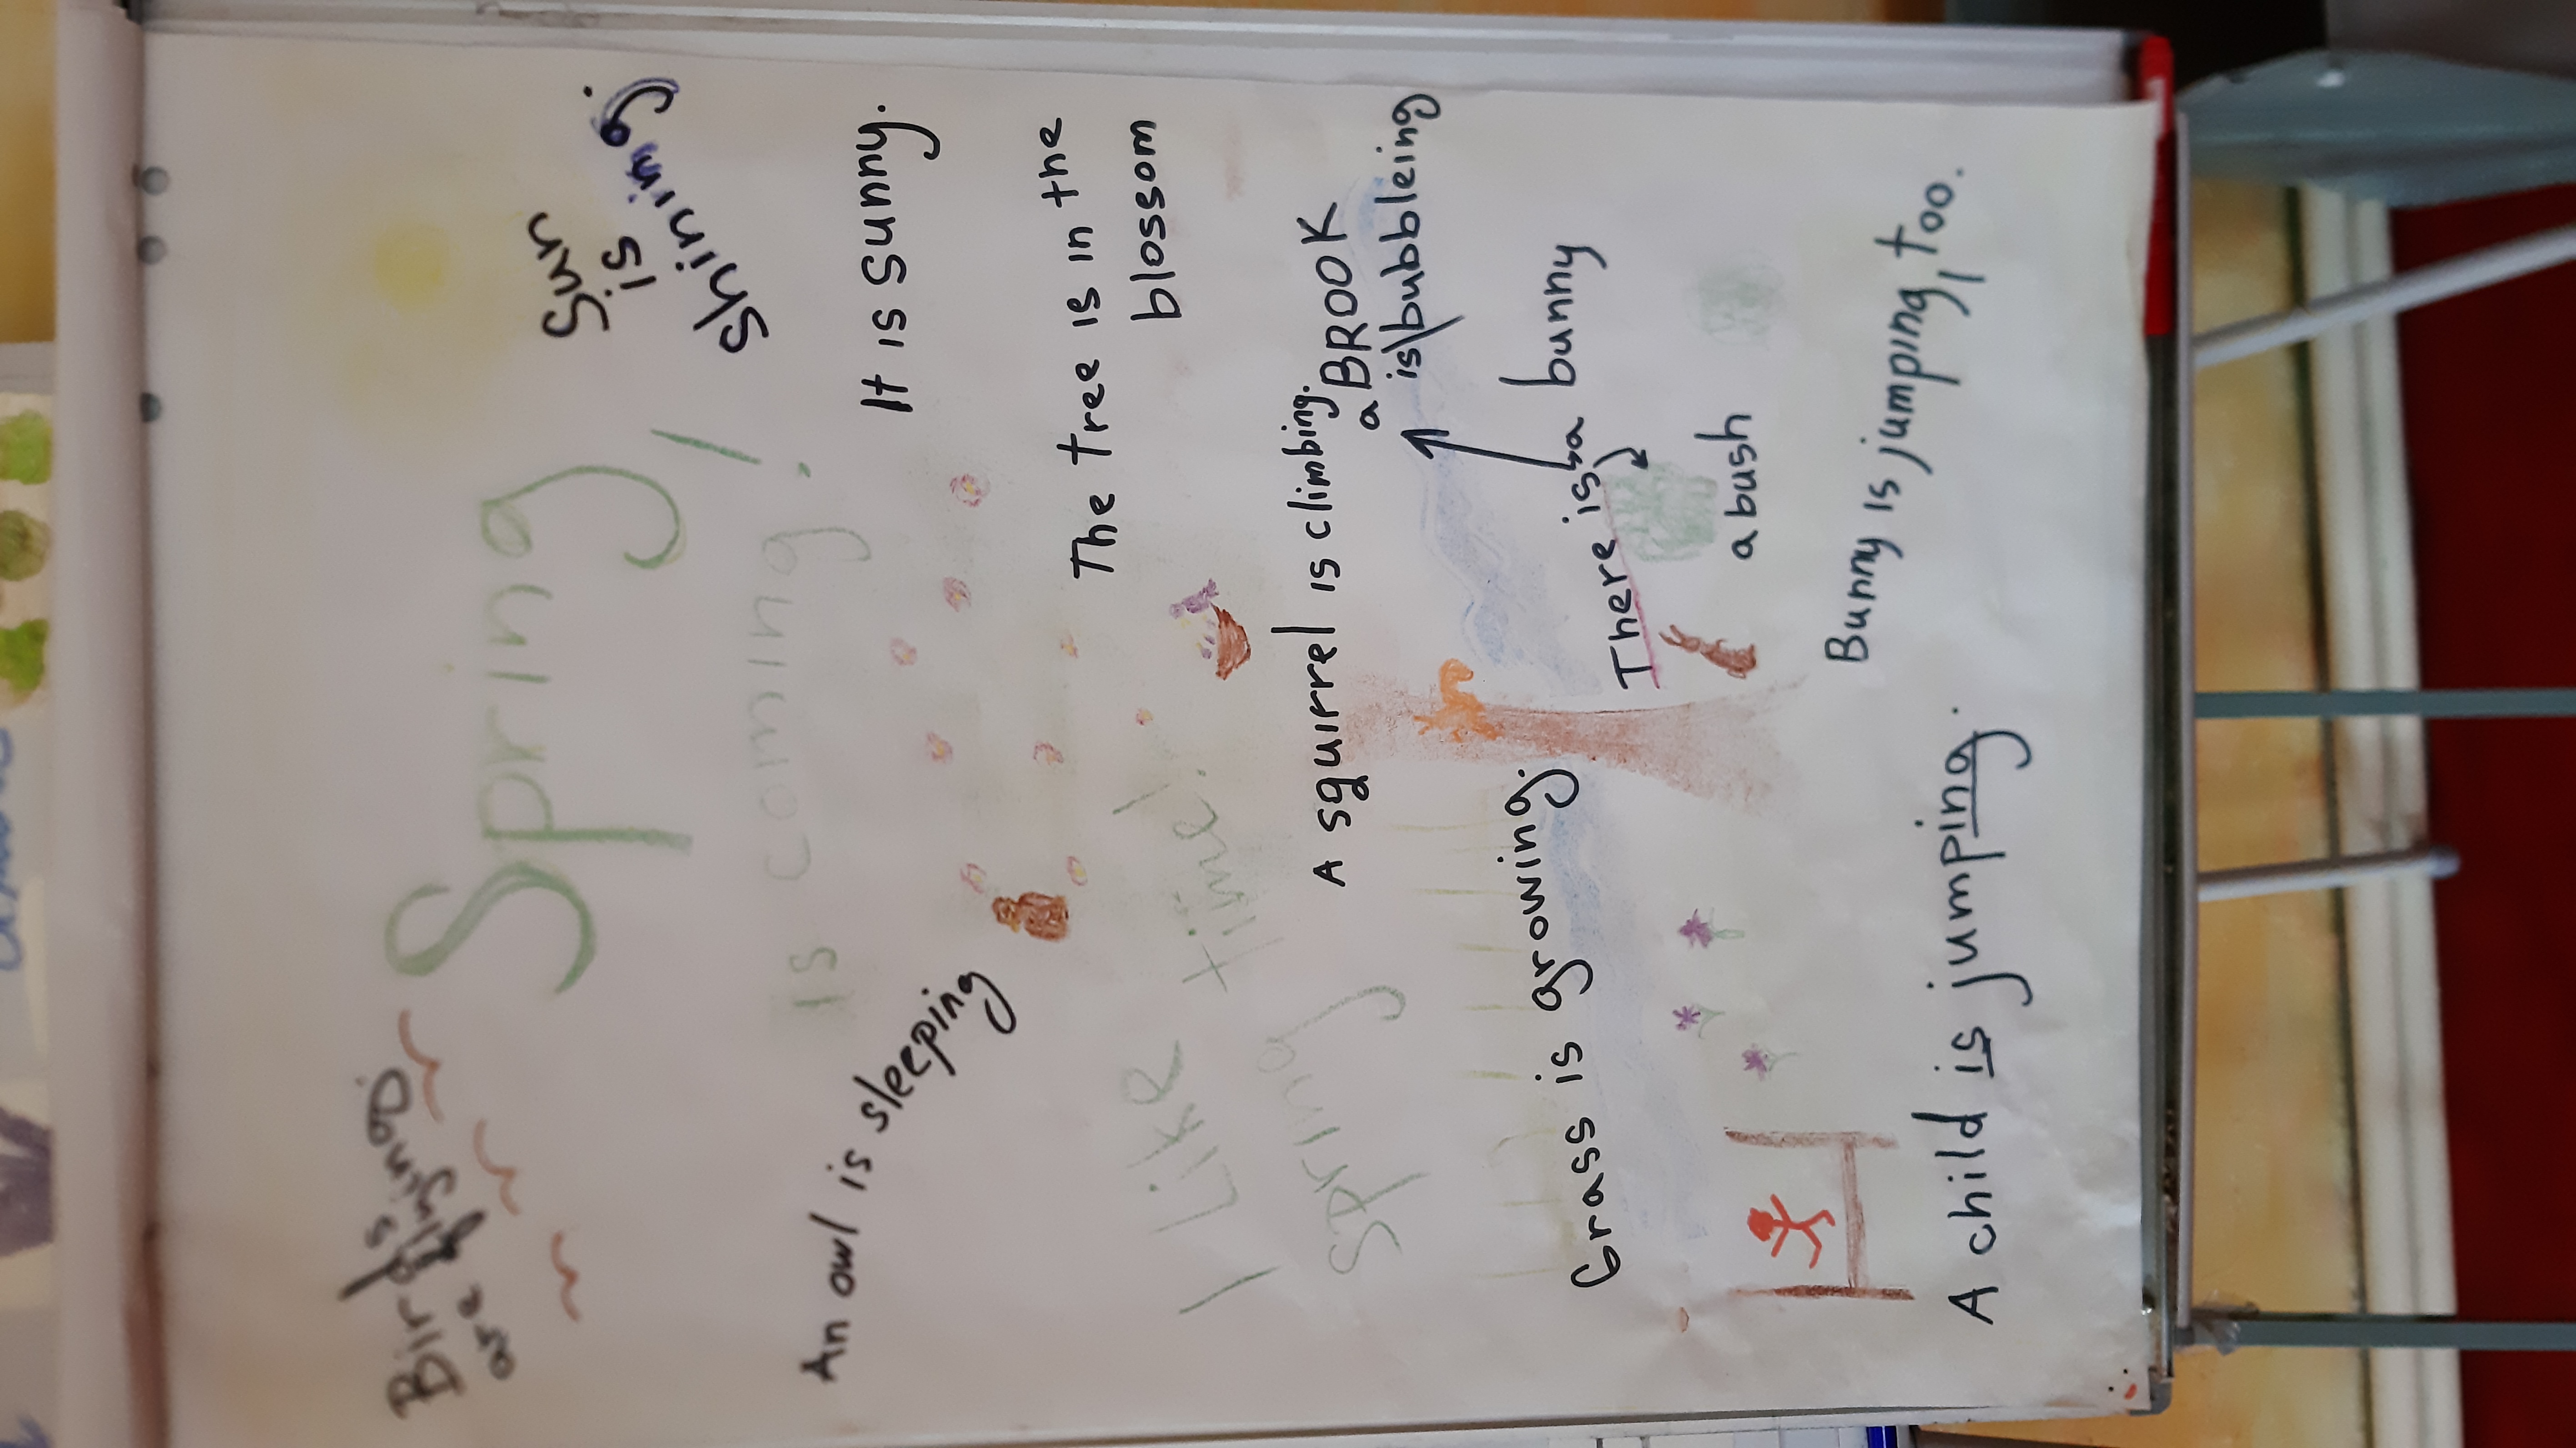 Birds
are flying
Spring,
is coming!
Sun
is
shining.
It is sunny.
An owl is sleeping
The tree is in the
blossom
I like
spring
time!
A squirrel is climbing.
a BROOK
is bubbleing
Grass is growing.
There is a bunny
a bush
Bunny is jumping, too.
A child is jumping.